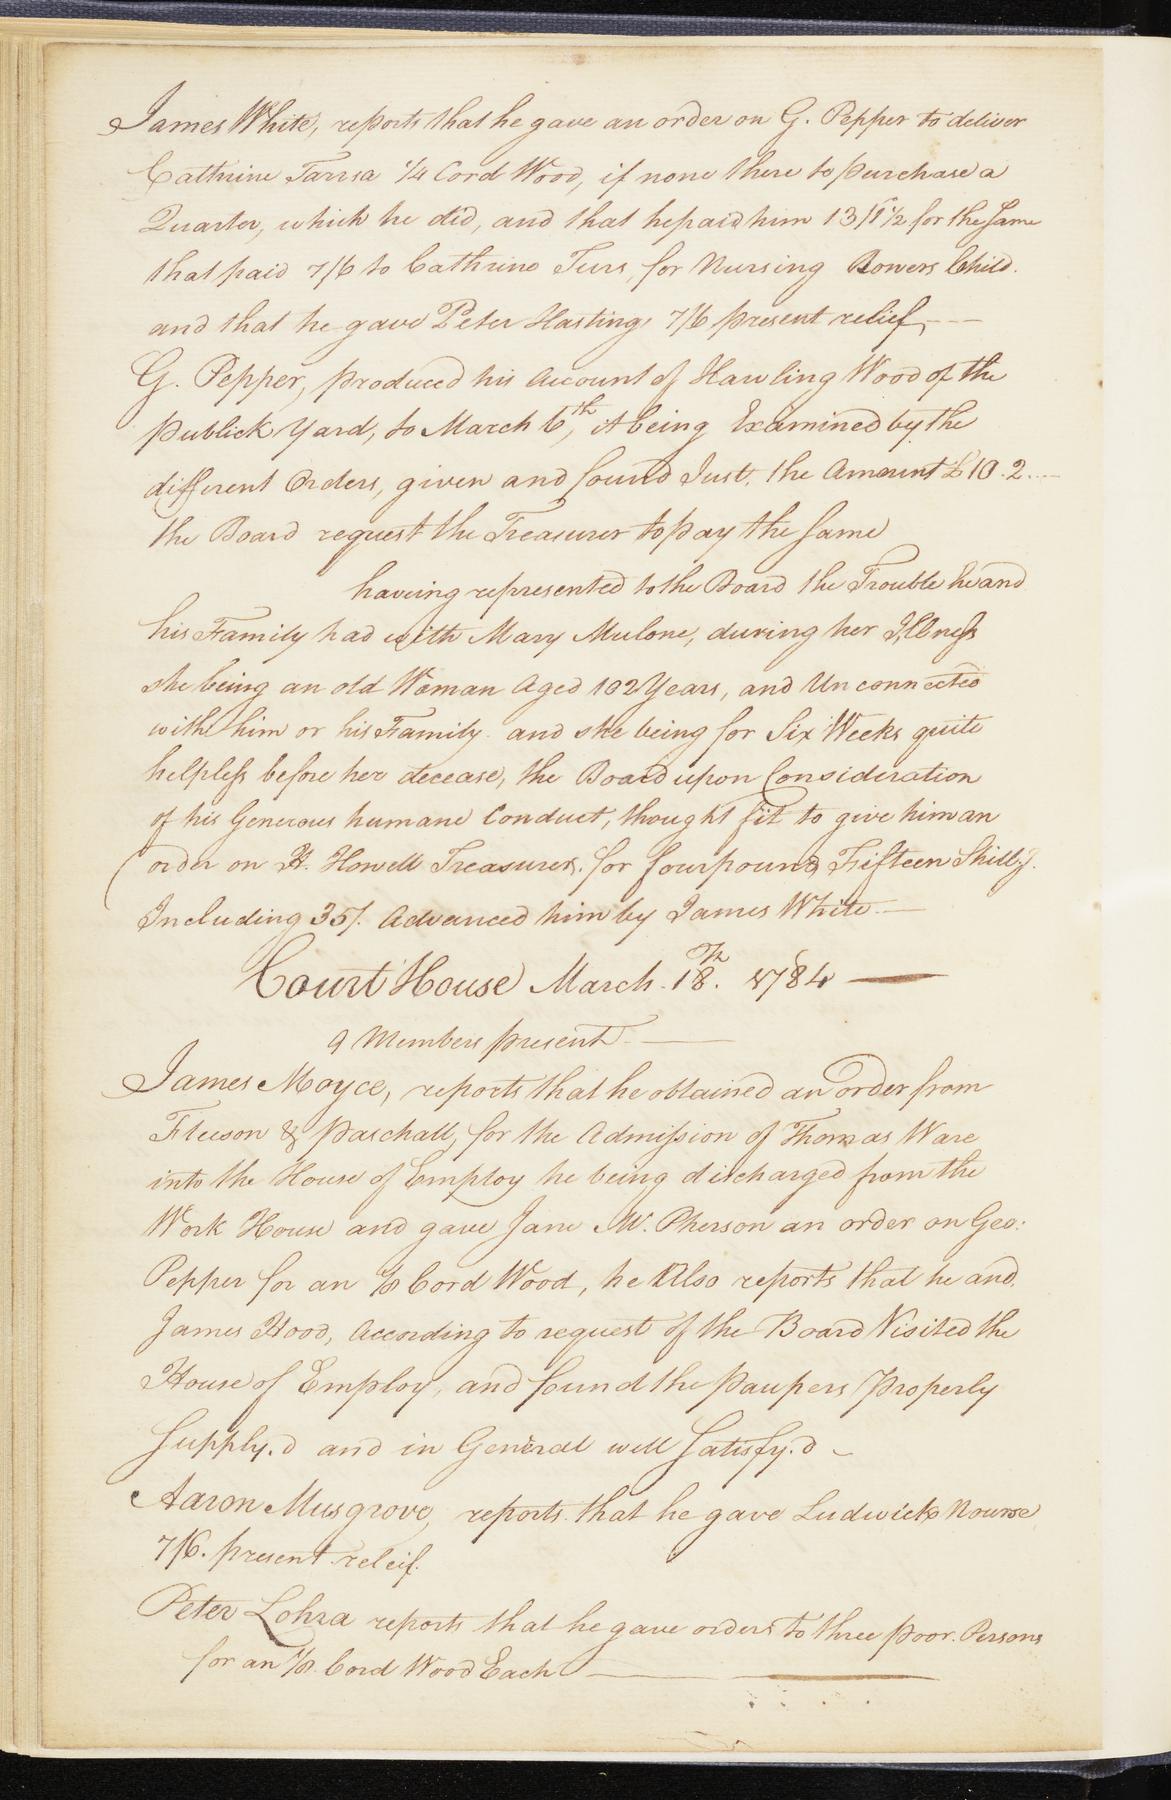 James White, reports that he gave an order on G. Pepper to deliver
Cathrine Tarrsa 1/4 Cord Wood, if none there to purchase a
Quarter, which he did, and that he paid him 13/1 1/2 for the same
that paid 7/6 to Cathrine Turs, for Nursing Bowers Child.
and that he gave Peter Hastings 7/6 present relief,
G. Pepper, produced his Account of Hawling Wood of the
publick Yard, to March 6th, it being Examined by the
different Orders, given and found Just, the Amount £10.2....
the Board request the Treasurer to pay the same
haveing represented to the Board the Trouble he and
his Family had with Mary Mulone, during her Illness
she being an old Woman Aged 102 Years, and Unconnected
with him or his Family. and she being for Six Weeks quite
helpless before her decease, the Board upon Consideration
of his Generous humane Conduct, thought fit to give him an
order on H. Howell Treasurer, for four pound Fifteen Shillgs.
Including 35/. Advanced him by James White.
Court House March. 18.th 1784
9 Members present
James Moyce, reports that he obtained an order from
Fleeson & Paschall, for the Admission of Thomas Ware
into the House of Employ he being discharged from the
Work House and gave Jane Mc.Pherson an order on Geo:
Pepper for an 1/8 Cord Wood, he Also reports that he and.
James Hood, According to request of the Board Visited the
House of Employ, and found the paupers Properly
Supply.d and in General well Satisfy.d
Aaron Musgrove, reports that he gave Ludwick Nourse
7/6. present releif.
Peter Lohra reports that he gave orders to three poor. Persons
for an 1/8 Cord Wood Each